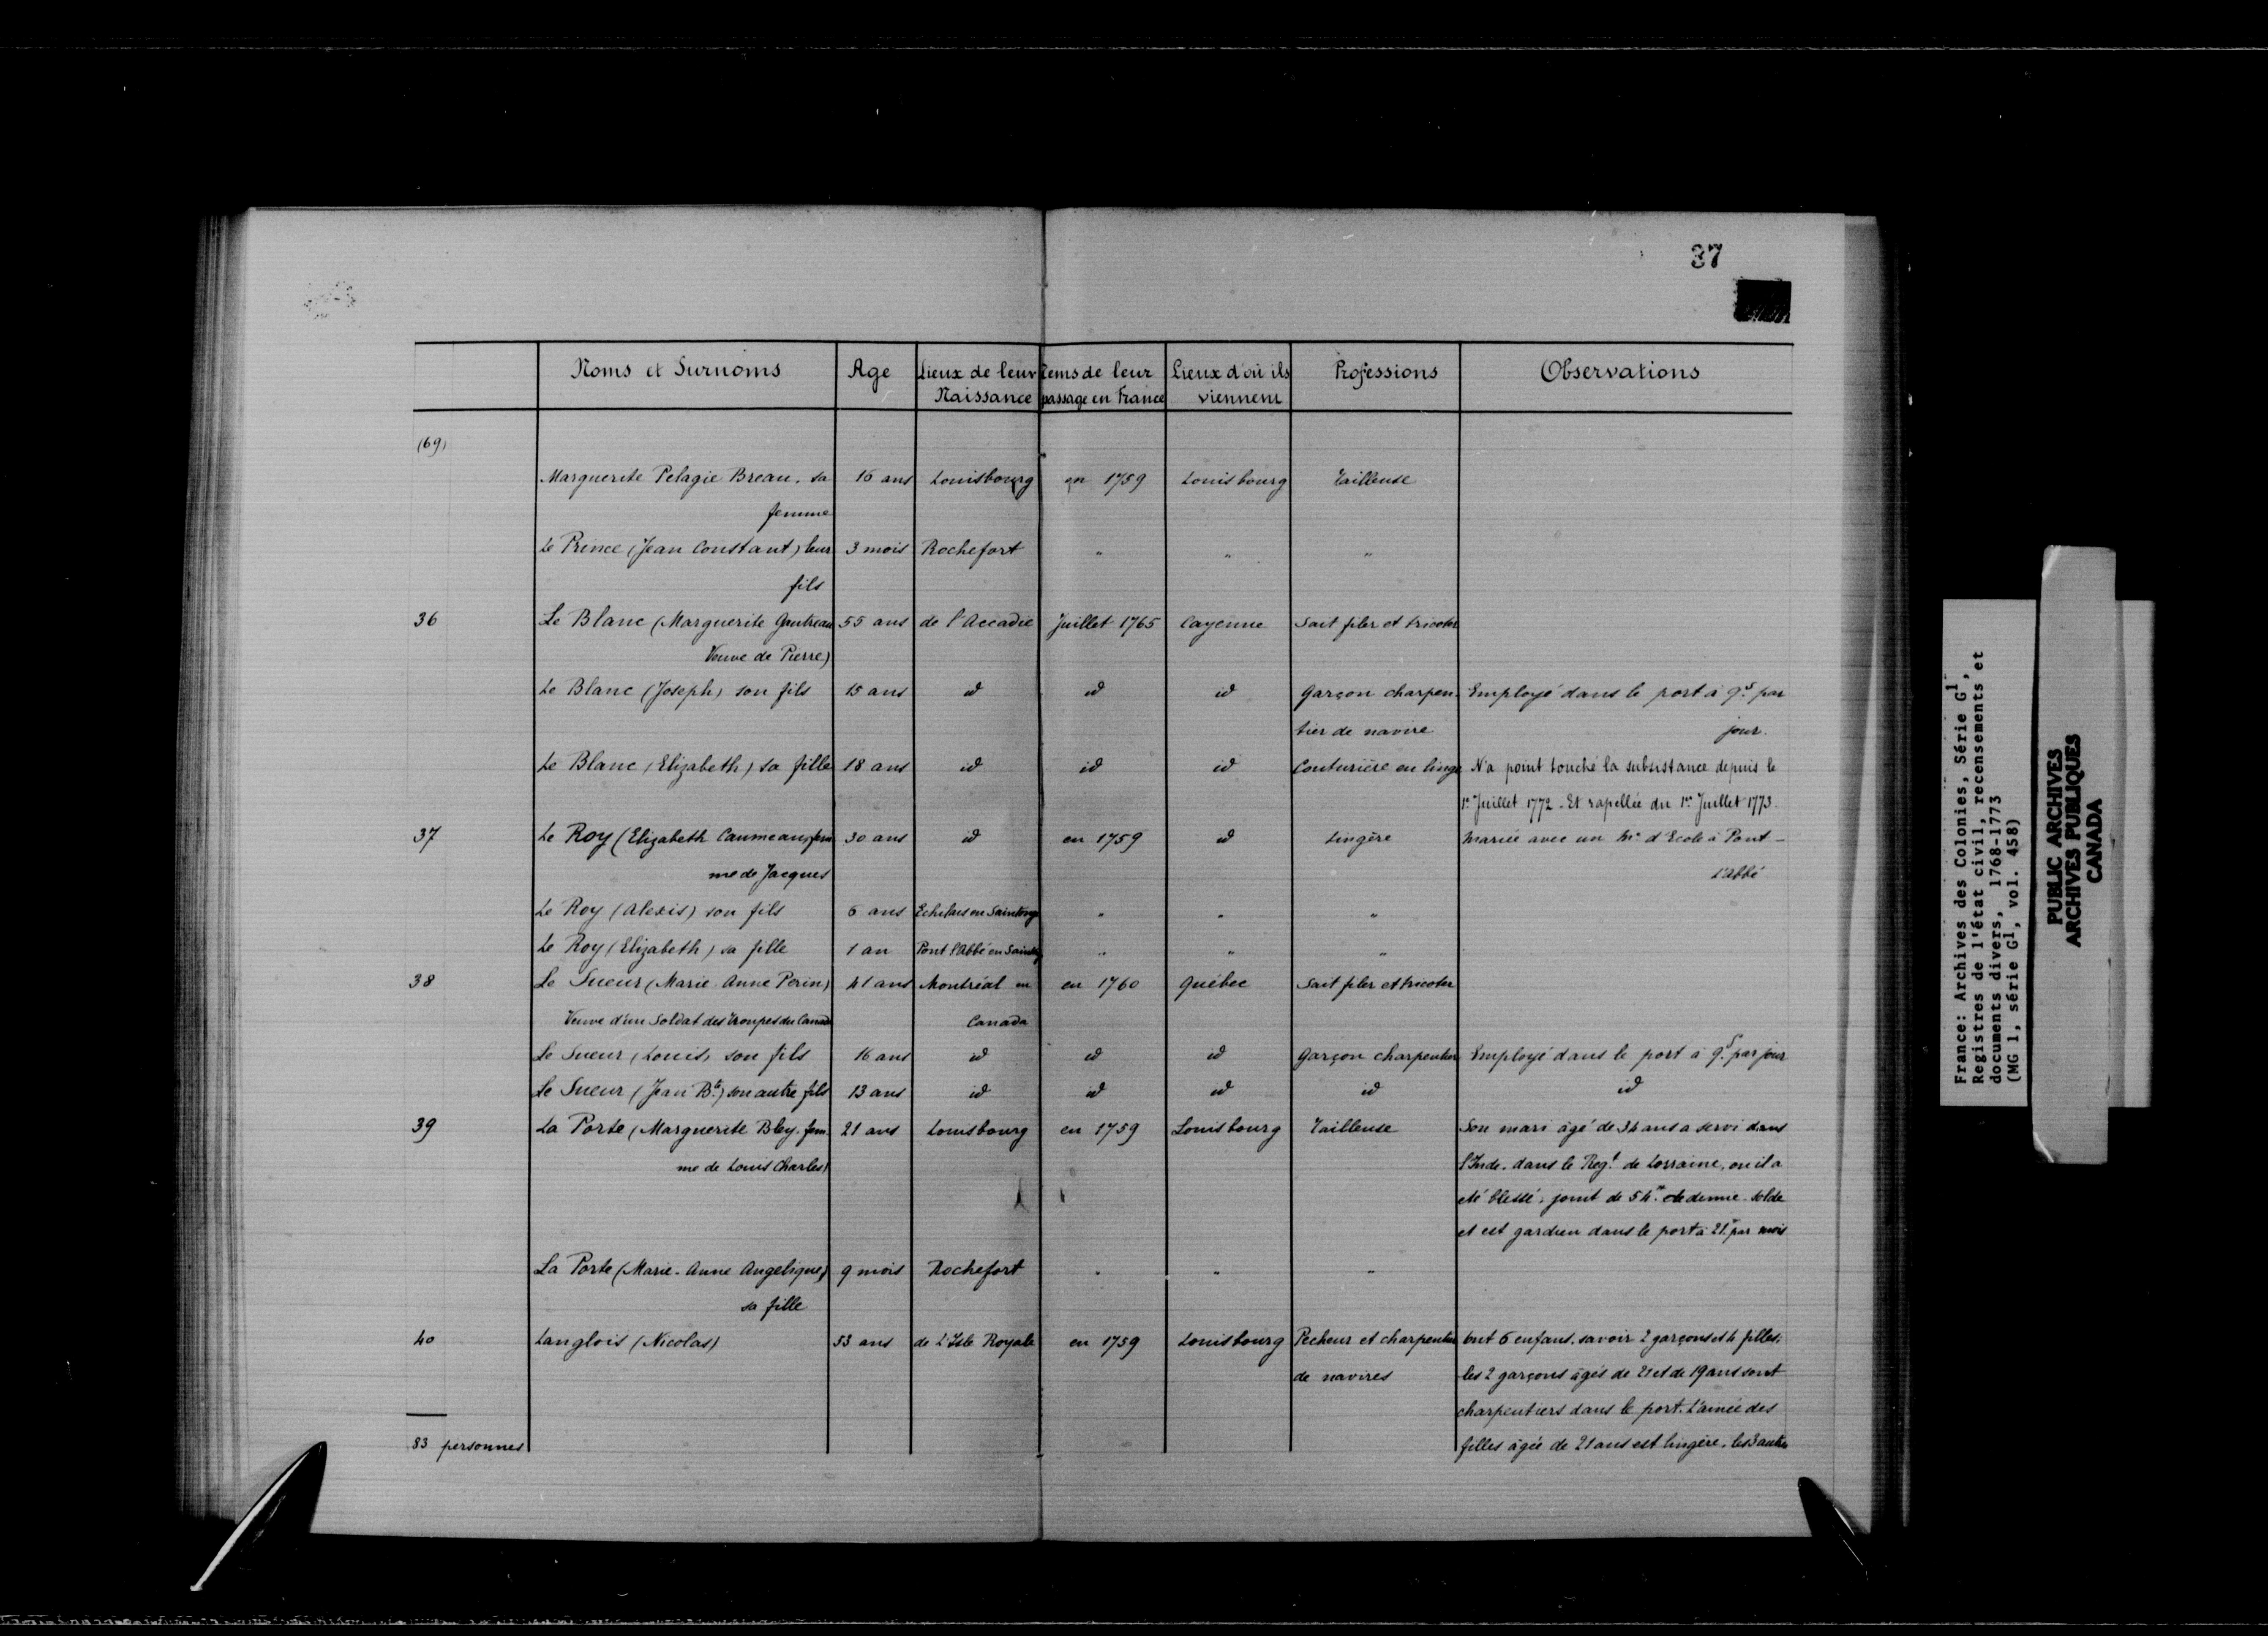 37
Noms et Surnoms Age Lieux de leur Naissance Tems de leur passage en France Lieux d'où ils viennent Professions Observations
(69)
Marguerite Pelagie Breau, sa 16 ans Louisbourg en 1759 Louisbourg Tailleuse
femme
Le Prince (Jean Constant) leur 3 mois Rochefort " " "
fils
36 Le Blanc (Marguerite Gautreau 55 ans de l'Accadie Juillet 1765 Cayenne Sait filer et tricoter
Veuve de Pierre)
Le Blanc (Joseph) son fils 15 ans id id id garçon charpen- Employé dans le port à 9s. par
tier de navire jour.
Le Blanc (Elizabeth) sa fille 18 ans id id id Couturière en linge N'a point touché la subsistance depuis le
1er Juillet 1772 - Et rapellée du 1er Juillet 1773.
37 Le Roy (Elizabeth Caumeau, fem 30 ans id en 1759 id Lingère Mariée avec un Me d'Ecole à Pont-
me de Jacques l'Abbé
Le Roy (Alexis) son fils 6 ans en Saintonge " " "
Le Roy (Elizabeth) sa fille 1 an Pont l'Abbé en Saintg " " "
38 Le Sueur (Marie-Anne Perin) 41 ans Montréal en en 1760 Québec Sait filer et tricoter
Veuve d'un Soldat des troupes du Canada Canada
Le Sueur (Louis) son fils 16 ans id id id garçon charpentier Employé dans le port à 9s. par jour
Le Sueur (Jean Bte.) son autre fils 13 ans id id id id id
39 La Porte (Marguerite Bley, fem- 21 ans Louisbourg en 1759 Louisbourg Tailleuse Son mari âgé de 34 ans a servi dans
me de Louis Charles) l'Inde, dans le Regt. de Lorraine, ou il a
eté blessé, jouit de 54# de demie-solde
et est gardien dans le port à 21# par mois
La Porte (Marie-Anne Angelique) 9 mois Rochefort " " "
sa fille
40 Langlois (Nicolas) 53 ans de L'Isle Royale en 1759 Louisbourg Pecheur et charpentier ont 6 enfans, savoir 2 garçons et 4 filles;
de navires les 2 garçons âgés de 21 et de 19 ans sont
charpentiers dans le port. L'ainée des
83 personnes filles âgée de 21 ans est lingère, les 3 autres
France: Archives des Colonies, Série G1,
Registres de l'état civil, recensements et
documents divers, 1768-1773
(MG 1, série G1, vol. 458)
PUBLIC ARCHIVES
ARCHIVES PUBLIQUES
CANADA